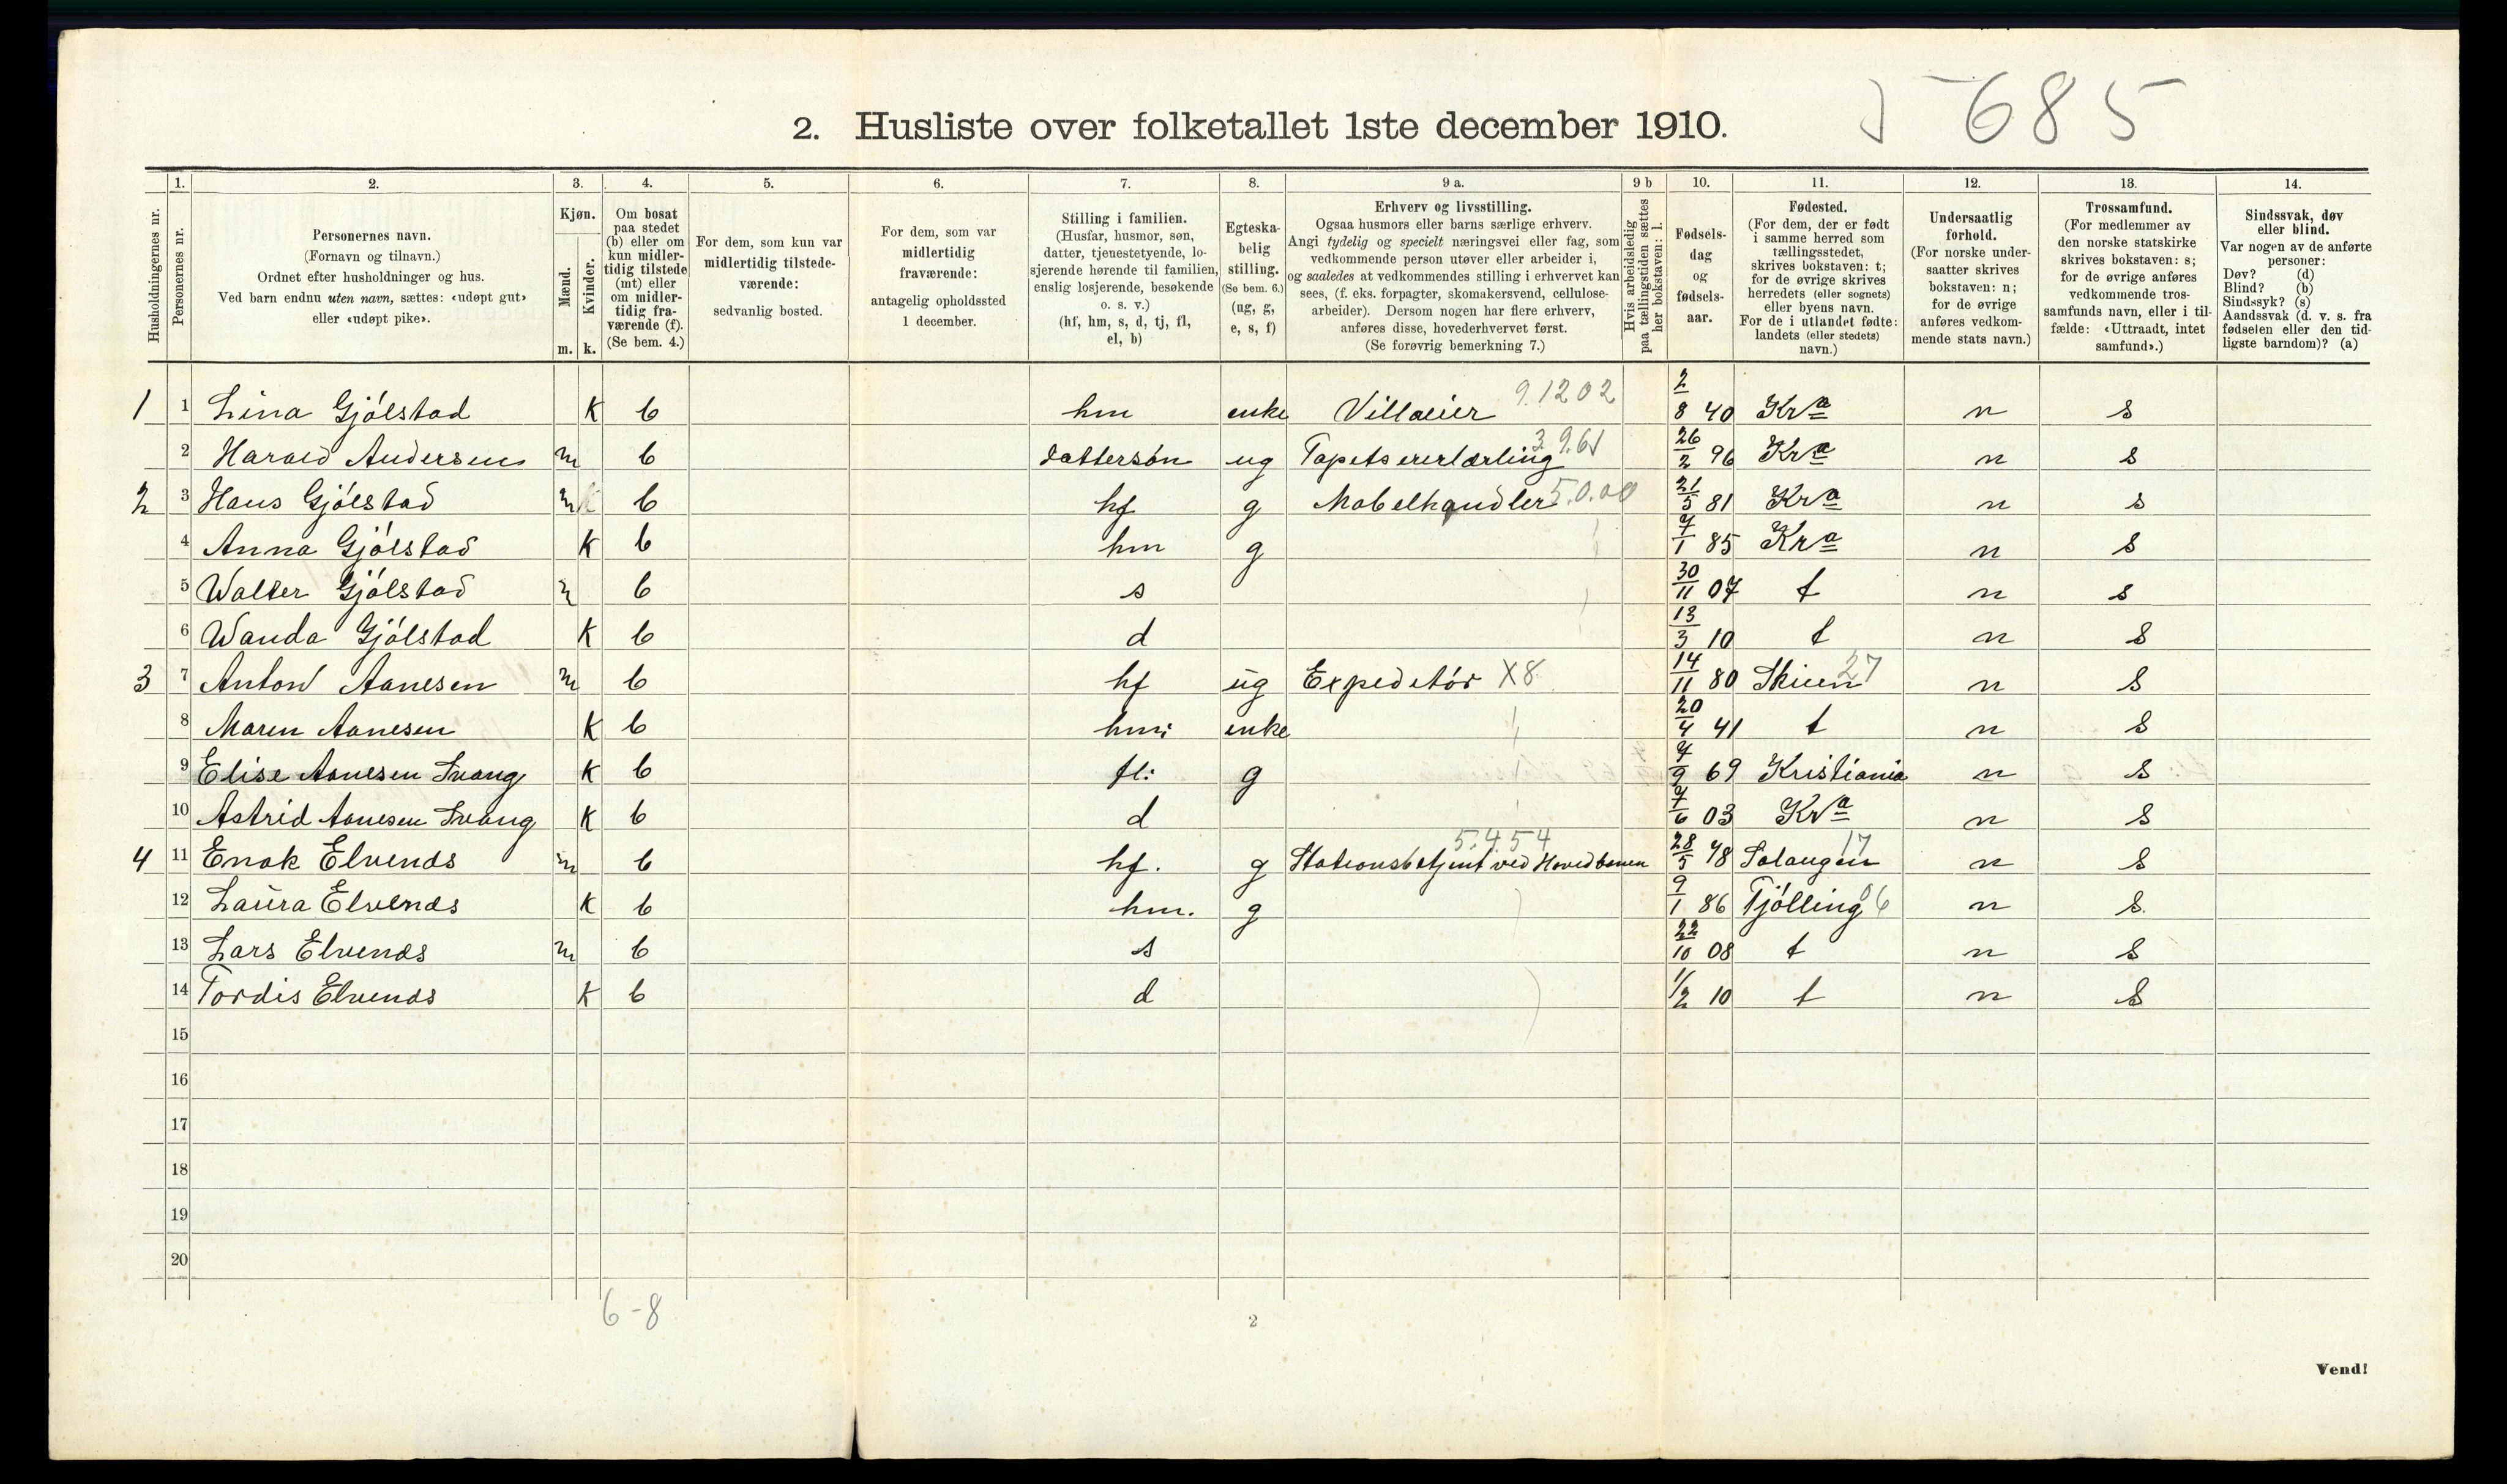 J 685
2. Husliste over folketallet 1ste december 1910.
Husholdningernes nr.
1. Personernes nr.
2. Personernes navn.
(Fornavn og tilnavn.)
Ordnet efter husholdninger og hus.
Ved barn endnu uten navn, sættes: «udøpt gut»
eller «udøpt pike».
3. Kjøn.
Mænd. m.
Kvinder. k.
4. Om bosat
paa stedet
(b) eller om
kun midler-
tidig tilstede
(mt) eller
om midler-
tidig fra-
værende (f).
(Se bem. 4.)
5. For dem, som kun var
midlertidig tilstede-
værende:
sedvanlig bosted.
6. For dem, som var
midlertidig
fraværende:
antagelig opholdssted
1 december.
7. Stilling i familien.
(Husfar, husmor, søn,
datter, tjenestetyende, lo-
sjerende hørende til familien,
enslig losjerende, besøkende
o. s. v.)
(hf, hm, s, d, tj, fl,
el, b)
8. Egteska-
belig
stilling.
(Se bem. 6.)
(ug, g,
e, s, f)
9 a. Erhverv og livsstilling.
Ogsaa husmors eller barns særlige erhverv.
Angi tydelig og specielt næringsvei eller fag, som
vedkommende person utøver eller arbeider i,
og saaledes at vedkommendes stilling i erhvervet kan
sees, (f. eks. forpagter, skomakersvend, cellulose-
arbeider). Dersom nogen har flere erhverv,
anføres disse, hovederhvervet først.
(Se forøvrig bemerkning 7.)
9 b Hvis arbeidsledig
paa tællingstiden sættes
her bokstaven: l.
10. Fødsels-
dag
og
fødsels-
aar.
11. Fødested.
(For dem, der er født
i samme herred som
tællingsstedet,
skrives bokstaven: t;
for de øvrige skrives
herredets (eller sognets)
eller byens navn.
For de i utlandet fødte:
landets (eller stedets)
navn.)
12. Undersaatlig
forhold.
(For norske under-
saatter skrives
bokstaven: n;
for de øvrige
anføres vedkom-
mende stats navn.)
13. Trossamfund.
(For medlemmer av
den norske statskirke
skrives bokstaven: s;
for de øvrige anføres
vedkommende tros-
samfunds navn, eller i til-
fælde: «Uttraadt, intet
samfund».)
14. Sindssvak, døv
eller blind.
Var nogen av de anførte
personer:
Døv? (d)
Blind? (b)
Sindssyk? (s)
Aandssvak (d. v. s. fra
fødselen eller den tid-
ligste barndom)? (a)
1 1 Lina Gjølstad K b hm enke Villaeier 9.1202 2/8 40 Kra n s
2 Harald Andersen m b dattersøn ug Tapetsererlærling 39.61 26/2 96 Kra n s
2 3 Hans Gjølstad m b hf g Møbelhandler 5.0.00 21/5 81 Kra n s
4 Anna Gjølstad K b hm g 7/1 85 Kra n s
5 Walter Gjølstad m b s 30/11 07 t n s
6 Wanda Gjølstad K b d 13/3 10 t n s
3 7 Anton Aanesen m b hf ug Expeditør X8 14/11 80 Skien 27 n s
8 Maren Aanesen K b hm enke 20/4 41 t n s
9 Elise Aanesen Svang K b fl: g 7/9 69 Kristiania n s
10 Astrid Aanesen Svang K b d 7/6 03 Kra n s
4 11 Enok Elvenes m b hf. g Stationsbetjent ved Hovedbanen 5.4.54 28/5 78 Salangen 17 n s
12 Laura Elvenes K b hm. g 9/1 86 Tjølling 06 n s.
13 Lars Elvenes m b s 22/10 08 t n s
14 Tordis Elvenes K b d 1/2 10 t n s
15
16
17
18
19
20
6-8
2
Vend!